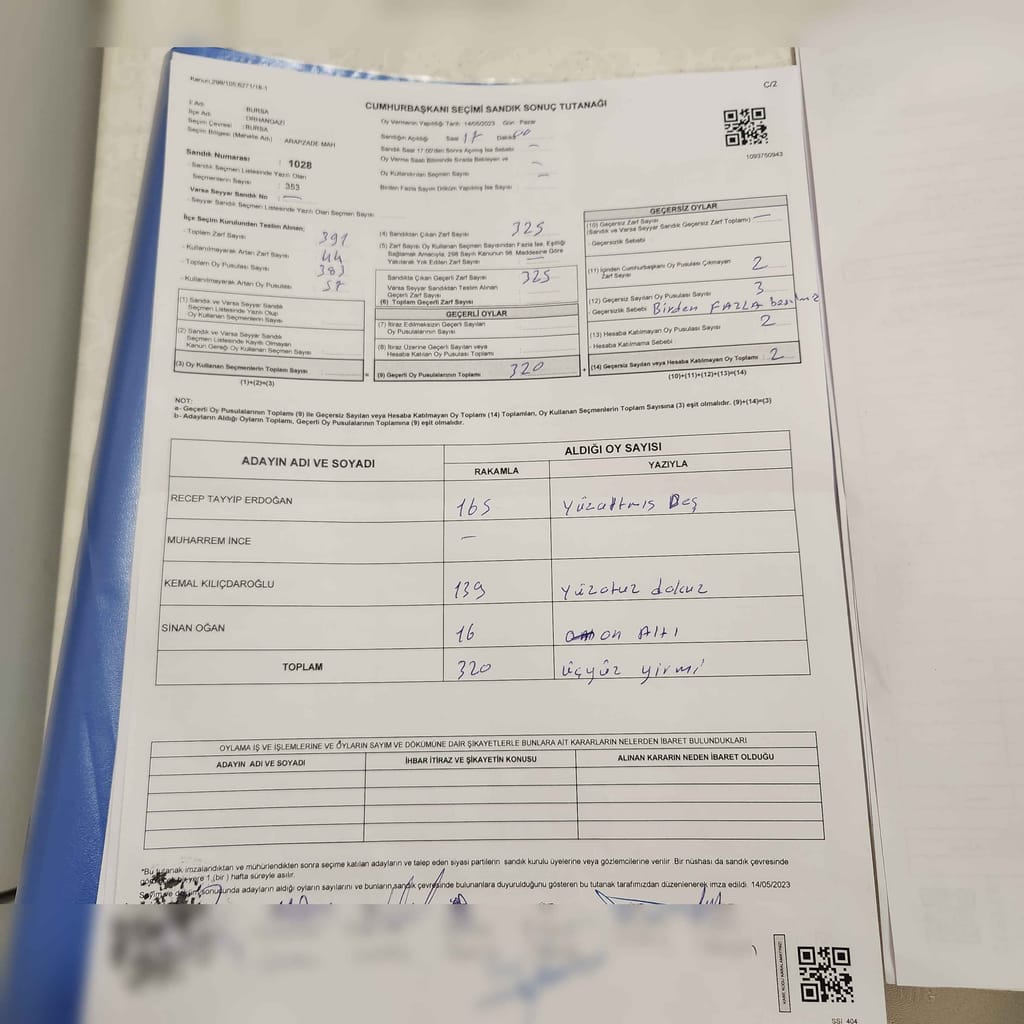 Kanun:298/105,6271/18-1
C/2
CUMHURBAŞKANI SEÇİMİ SANDIK SONUÇ TUTANAĞI
İl Adı: BURSA
İlçe Adı: ORHANGAZİ
Seçim Çevresi: BURSA
Seçim Bölgesi (Mahalle Adı) ARAPZADE MAH
Oy Vermenin Yapıldığı Tarih: 14/05/2023 Gün: Pazar
Sandığın Açıldığı Saat 17 Dakika
Sandık Saat 17:00'den Sonra Açılmış İse Sebebi —
Oy Verme Saati Bitiminde Sırada Bekleyen ve
Oy Kullandırılan Seçmen Sayısı —
Birden Fazla Sayım Döküm Yapılmış İse Sayısı —
1093750943
Sandık Numarası : 1028
- Sandık Seçmen Listesinde Yazılı Olan
Seçmenlerin Sayısı : 353
Varsa Seyyar Sandık No : —
- Seyyar Sandık Seçmen Listesinde Yazılı Olan Seçmen Sayısı
İlçe Seçim Kurulundan Teslim Alınan;
- Toplam Zarf Sayısı 391
- Kullanılmayarak Artan Zarf Sayısı 44
- Toplam Oy Pusulası Sayısı 383
- Kullanılmayarak Artan Oy Pusulası
(1) Sandık ve Varsa Seyyar Sandık
Seçmen Listesinde Yazılı Olup
Oy Kullanan Seçmenlerin Sayısı
(2) Sandık ve Varsa Seyyar Sandık
Seçmen Listesinde Kayıtlı Olmayan
Kanun Gereği Oy Kullanan Seçmen Sayısı
(3) Oy Kullanan Seçmenlerin Toplam Sayısı
(1)+(2)=(3)
=
(4) Sandıktan Çıkan Zarf Sayısı 325
(5) Zarf Sayısı Oy Kullanan Seçmen Sayısından Fazla İse, Eşitliği
Sağlamak Amacıyla; 298 Sayılı Kanunun 98. Maddesine Göre
Yakılarak Yok Edilen Zarf Sayısı —
Sandıkta Çıkan Geçerli Zarf Sayısı 325
Varsa Seyyar Sandıktan Teslim Alınan
Geçerli Zarf Sayısı
(6) Toplam Geçerli Zarf Sayısı
GEÇERLİ OYLAR
(7) İtiraz Edilmeksizin Geçerli Sayılan
Oy Pusulalarının Sayısı
(8) İtiraz Üzerine Geçerli Sayılan veya
Hesaba Katılan Oy Pusulası Toplamı
(9) Geçerli Oy Pusulalarının Toplamı 320
+
GEÇERSİZ OYLAR
(10) Geçersiz Zarf Sayısı
(Sandık ve Varsa Seyyar Sandık Geçersiz Zarf Toplamı) —
- Geçersizlik Sebebi
(11) İçinden Cumhurbaşkanı Oy Pusulası Çıkmayan
Zarf Sayısı 2
(12) Geçersiz Sayılan Oy Pusulası Sayısı 3
- Geçersizlik Sebebi Birden FAZLA
(13) Hesaba Katılmayan Oy Pusulası Sayısı 2
- Hesaba Katılmama Sebebi
(14) Geçersiz Sayılan veya Hesaba Katılmayan Oy Toplamı 2
(10)+(11)+(12)+(13)=(14)
NOT:
a- Geçerli Oy Pusulalarının Toplamı (9) ile Geçersiz Sayılan veya Hesaba Katılmayan Oy Toplamı (14) Toplamları, Oy Kullanan Seçmenlerin Toplam Sayısına (3) eşit olmalıdır. (9)+(14)=(3)
b- Adayların Aldığı Oyların Toplamı, Geçerli Oy Pusulalarının Toplamına (9) eşit olmalıdır.
ADAYIN ADI VE SOYADI
ALDIĞI OY SAYISI
RAKAMLA YAZIYLA
RECEP TAYYİP ERDOĞAN 165 Yüzaltmış Beş
MUHARREM İNCE —
KEMAL KILIÇDAROĞLU 139 Yüzotuz dokuz
SİNAN OĞAN 16 on Altı
TOPLAM 320 üçyüz yirmi
OYLAMA İŞ VE İŞLEMLERİNE VE OYLARIN SAYIM VE DÖKÜMÜNE DAİR ŞİKAYETLERLE BUNLARA AİT KARARLARIN NELERDEN İBARET BULUNDUKLARI
ADAYIN ADI VE SOYADI İHBAR İTİRAZ VE ŞİKAYETİN KONUSU ALINAN KARARIN NEDEN İBARET OLDUĞU
*Bu tutanak imzalandıktan ve mühürlendikten sonra seçime katılan adayların ve talep eden siyasi partilerin sandık kurulu üyelerine veya gözlemcilerine verilir. Bir nüshası da sandık çevresinde
bir yere 1 (bir) hafta süreyle asılır.
Sayım ve döküm sonunda adayların aldığı oyların sayılarını ve bunların sandık çevresinde bulunanlara duyurulduğunu gösteren bu tutanak tarafımızdan düzenlenerek imza edildi. 14/05/2023
SSI 404